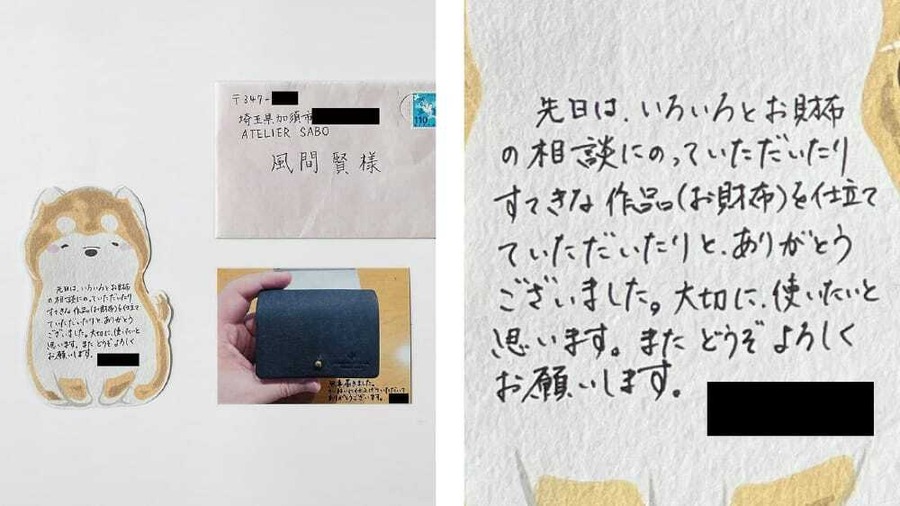 〒347-
埼玉県加須市
ATELIER SABO
風間賢様
110
先日は、いろいろとお財布
の相談にのっていただいたり
すてきな作品(お財布)を仕立て
ていただいたりと、ありがとう
ございました。大切に、使いたいと
思います。また どうぞ よろしく
お願いします。
無事届きました。
ありがとうございます。
先日は、いろいろとお財布
の相談にのっていただいたり
すてきな作品(お財布)を仕立て
ていただいたりと、ありがとう
ございました。大切に、使いたいと
思います。また どうぞ よろしく
お願いします。